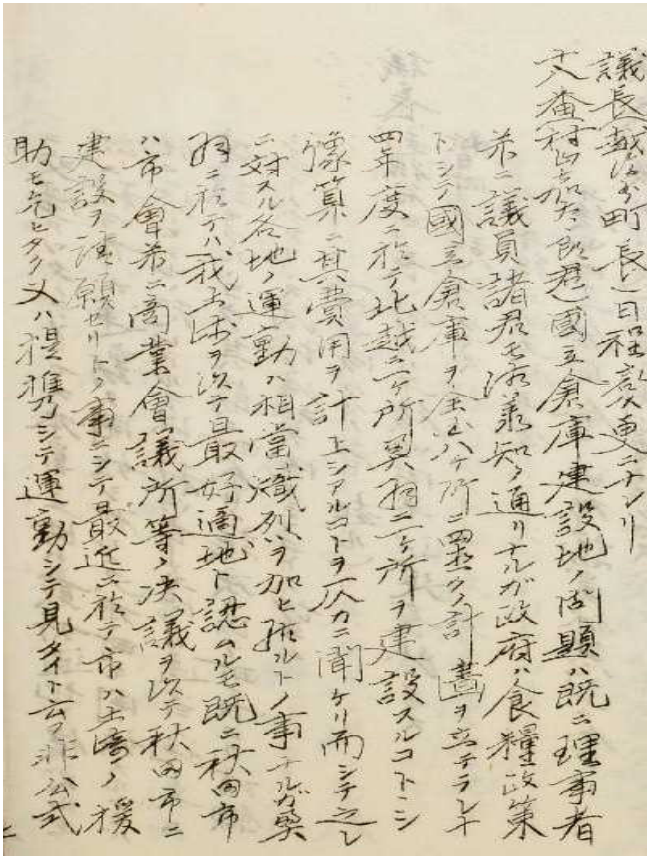 議長越後谷町長日程変更ニナシリ
十八番村山喜太郎君國立倉庫建設地ノ問題ハ既ニ理事者
并ニ議員諸君モ御承知ノ通リナルガ政府ハ食糧政策
トシテ國立倉庫ヲ全国八ケ所ニ置クノ計畫ヲ立テラレ十
四年度ニ於テ北越二ケ所奥羽二ケ所ヲ建設スルコトシ
豫算ニ其費用ヲ計上シアルコトヲ仄カニ聞ケリ而シテ之レ
ニ対スル各地ノ運動ハ相當熾烈ヲ加ヒ居ルトノ事ナルガ奥
羽ニ於テハ我土崎ヲ以テ最好適地ト認ムルモ既ニ秋田市
ハ市會并ニ商業會議所等ノ決議ヲ以テ秋田市ニ
建設ヲ請願セリトノ事ニシテ最近ニ於テ市ハ土崎ノ援
助モ乞ヒタク又ハ提携シテ運動シテ見タイト云フ非公式